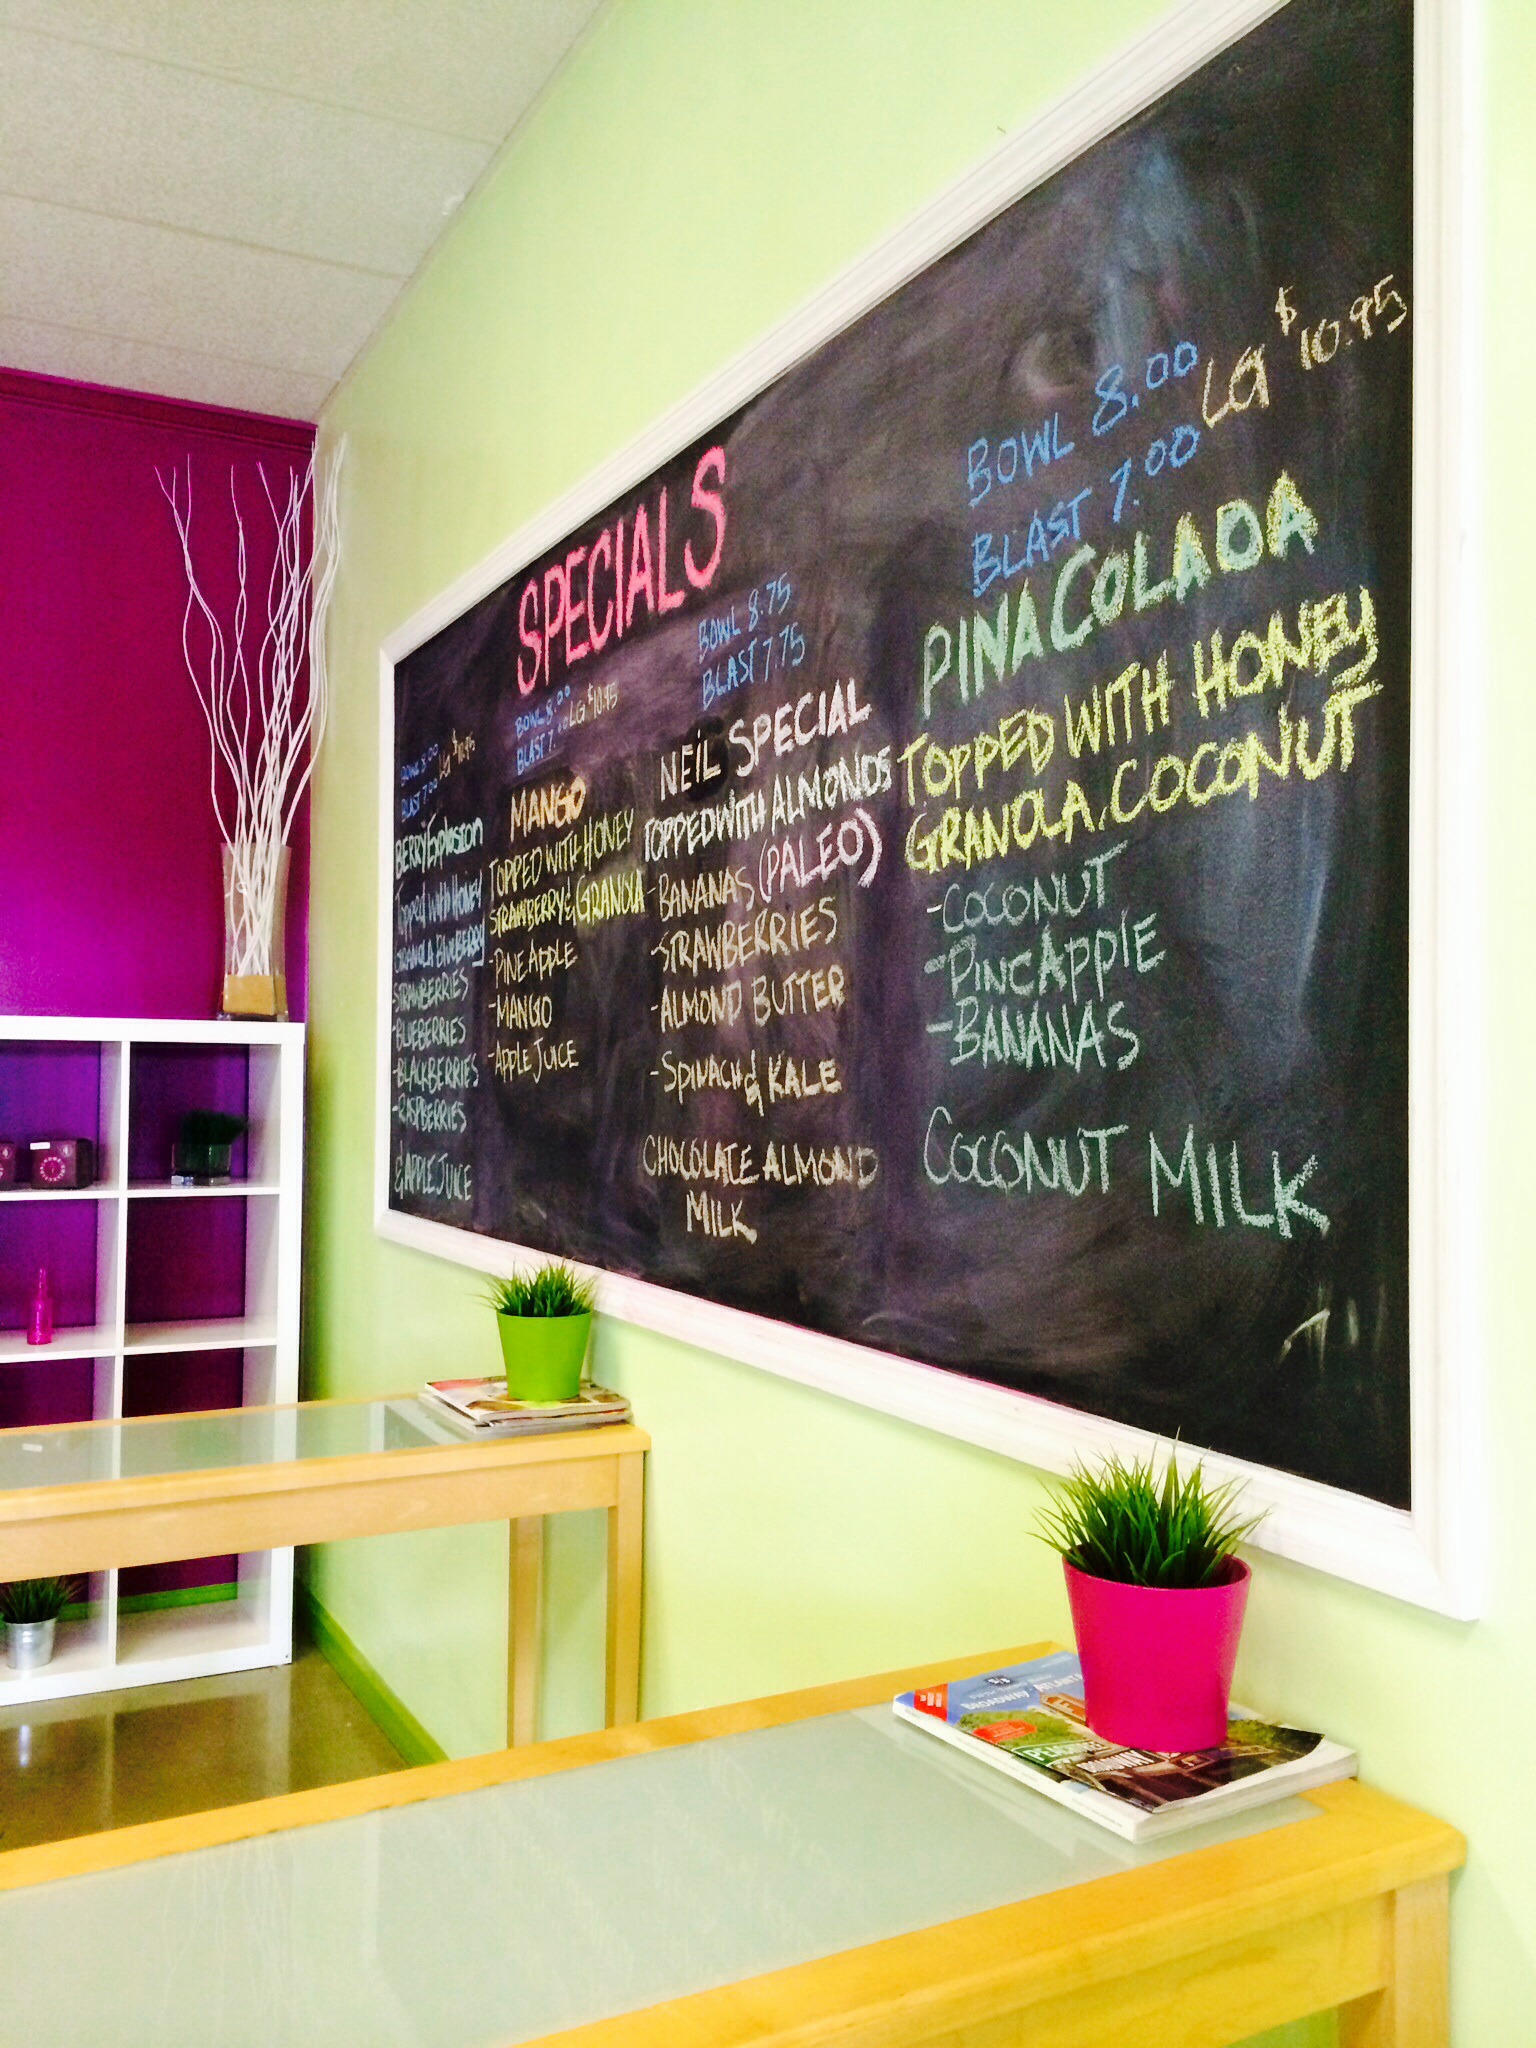 SPECIALS
BOWL 8.00 LG $10.95
BLAST 7.00
BERRY Explosion
Topped with Honey
GRANOLA BlUEBERRY
-STRAWBERRIES
-BLUEBERRIES
-BLACKBERRIES
-RASPBERRIES
& APPLE JUICE
BOWL 8.00 LG $10.95
BLAST 7.
MANGO
TOPPED WITH HONEY
STRAWBERRY & GRANOLA
-PINEAPPLE
-MANGO
-APPLE JUICE
BOWL 8.75
BLAST 7.75
NEiL SPECIAL
TOPPED WITH ALMONDS
-BANANAS (PALEO)
-STRAWBERRIES
-ALMOND BUTTER
-SPINACH & KALE
CHOCOLATE ALMOND
MILK
BOWL 8.00 LG $10.95
BLAST 7.00
PINA COLADA
TOPPED WITH HONEY
GRANOLA, COCONUT
-COCONUT
-PINEAPPlE
-BANANAS
COCONUT MILK
BROADWAY ATLANTA